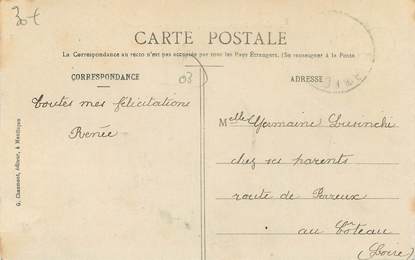 30€
CARTE POSTALE
La Correspondance au recto n'est pas acceptée par tous les Pays Étrangers. (Se renseigner à la Poste
CORRESPONDANCE
03
ADRESSE
toutes mes félicitations
Renée
Melle Germaine Lusinchi
chez ses parents
route de Perreux
au Coteau
(Loire)
G. Chaumont, éditeur, à Montluçon